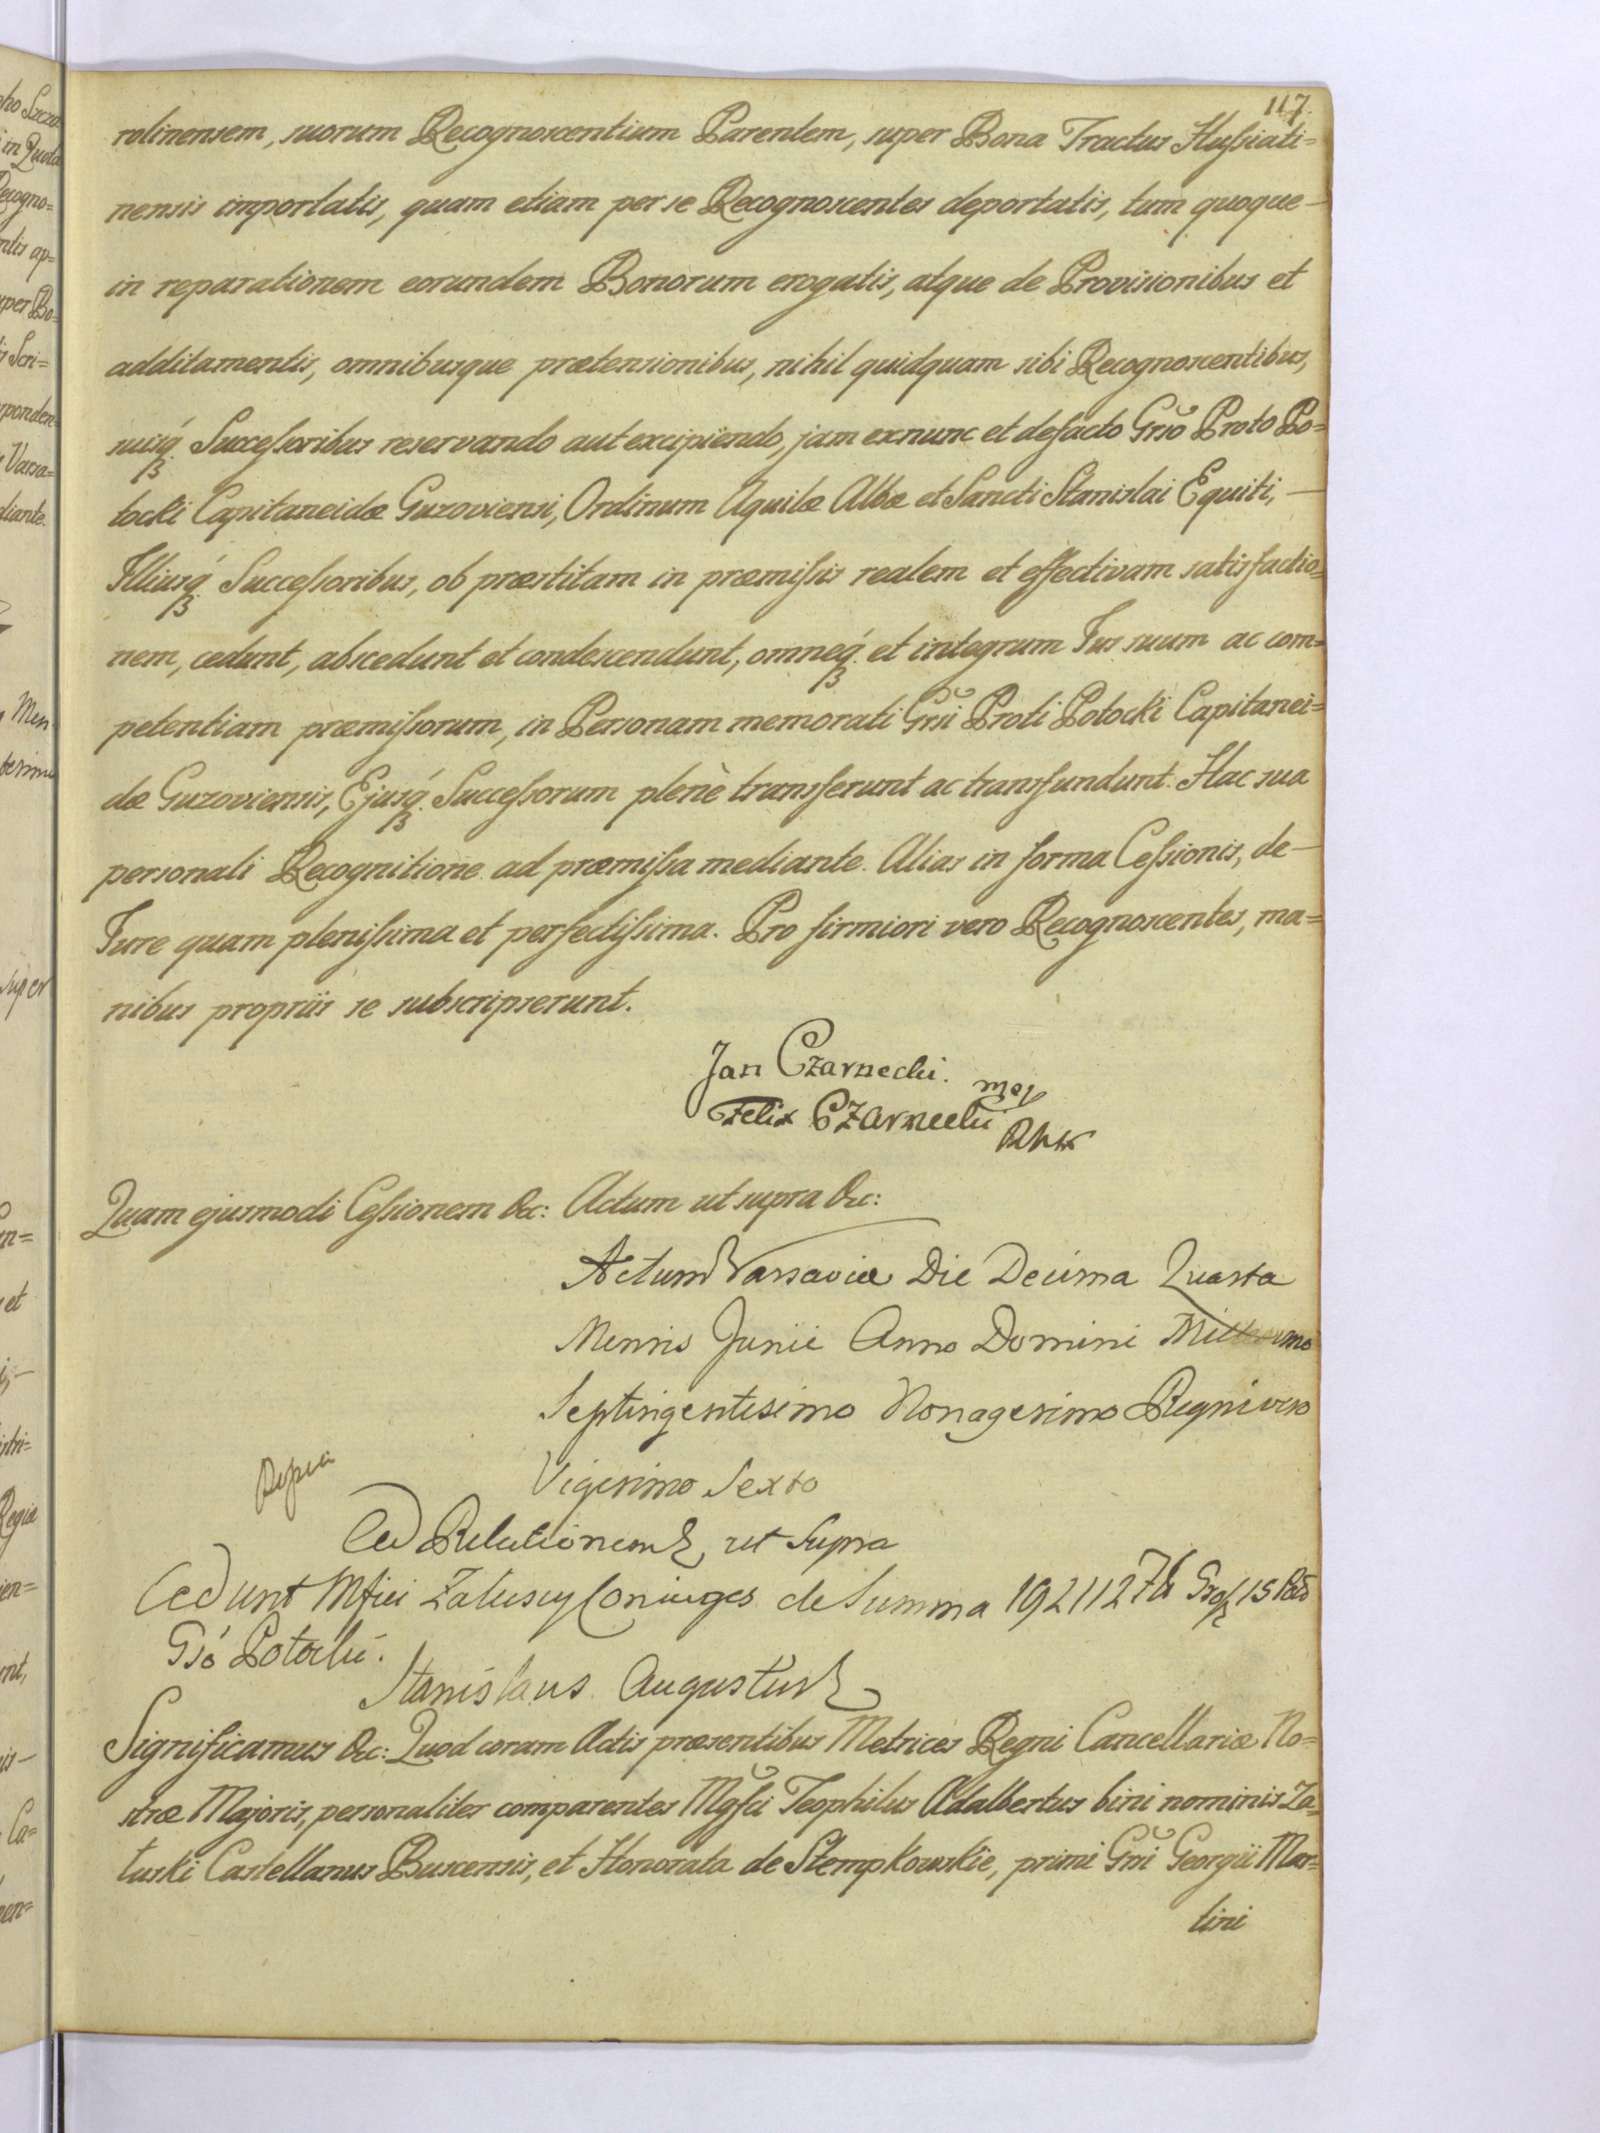 117.
rolinensem, suorum Recognoscentium Parentem, super Bona Tractus Husiati=
nensis importatis, quam etiam per se Recognoscentes deportatis, tum quoque
in reparationem eorundem Bonorum erogatis, atque de Provisionibus et
additamentis, omnibusque prætensionibus, nihil quidquam sibi Recognoscentibus,
suisq́ʒ Successoribus reservando aut excipiendo, jam exnunc et defacto Grso Proto Po=
tocki Capitaneidæ Guzoviensi, Ordinum Aquilæ Albæ et Sancti Stanislai Equiti, —
Illiusq́ʒ Successoribus, ob præstitam in præmissis realem et effectivam satisfactio=
nem, cedunt, abscedunt et condescendunt, omneq́ʒ et integrum Jus suum ac com=
petentiam præmissorum, in Personam memorati Grsi Proti Potocki Capitanei=
dæ Guzoviensis, Ejusq́ʒ Successorum plenè transferunt ac transfundunt. Hac sua
personali Recognitione ad præmissa mediante. Alias in forma Cessionis, de
Jure quam plenissima et perfectissima. Pro firmiori vero Recognoscentes, ma=
nibus propriis se subscripserunt.
Jan Czarnecki. mp
Felix Czarnecki
Quam ejusmodi Cessionem &c: Actum ut supra &c:
Actum Varsaviæ Die Decima Quarta
Mensis Junii Anno Domini Millesimo
Septingentesimo Nonagesimo Regni vero
Vigesimo Sexto
Ad Relationem ut Supra
Cedunt Mfici Zaluscy Coniuges de Summa 192112 Zł 15
Gsó Potocki.
Stanislaus Augustus
Significamus &c: Quod coram Actis præsentibus Metrices Regni Cancellariæ No=
stræ Majoris, personaliter comparentes Mgfci Teophilus Adalbertus bini nominis Za=
łuski Castellanus Buscensis, et Honorata de Stempkowskie, primi Grsi Georgii Mar=
tini